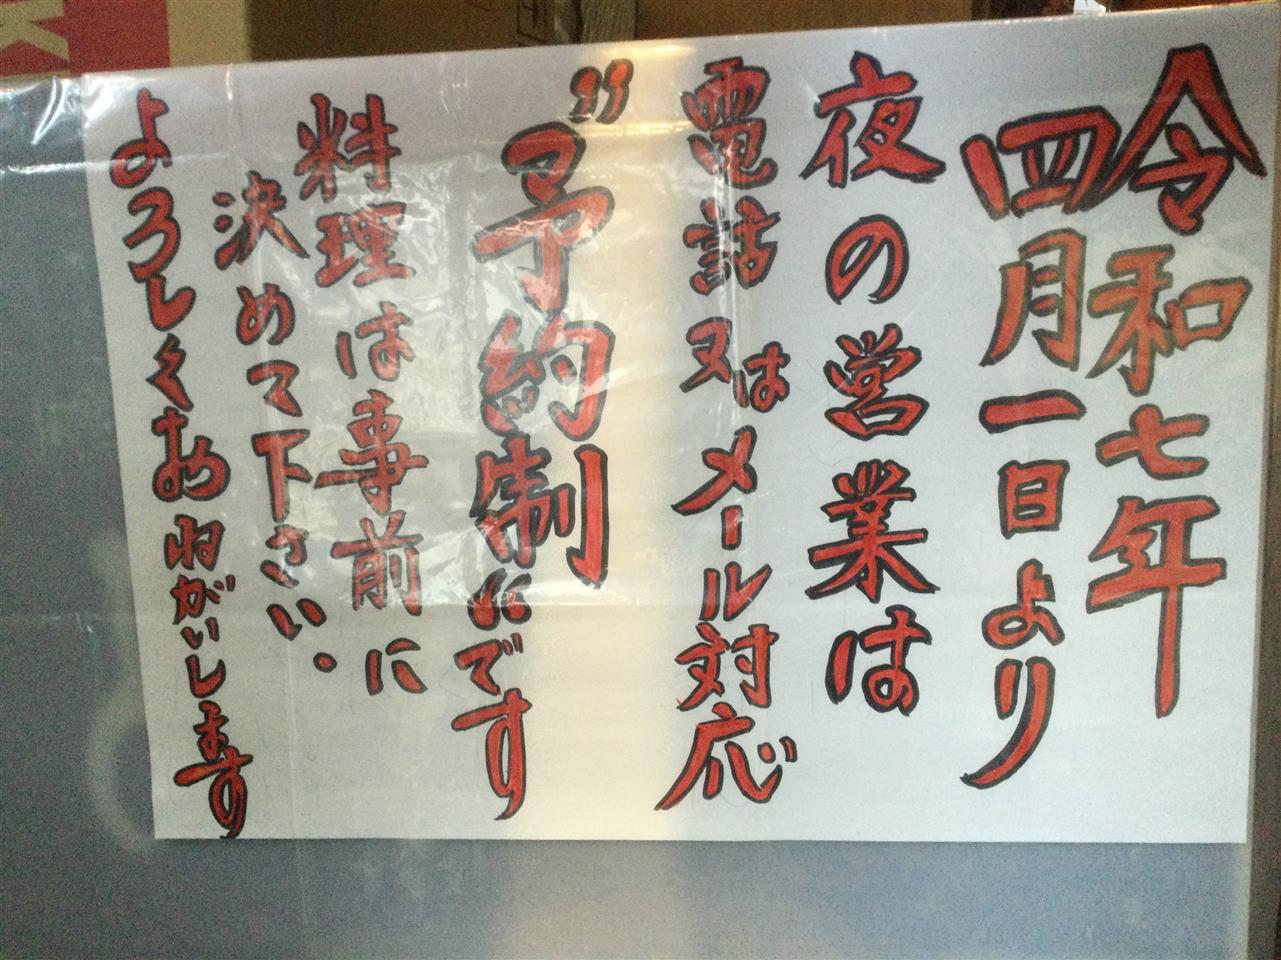 令和七年
四月一日より
夜の営業は
電話又はメール対応
〝予約制〟です
料理は事前に
決めて下さい.
よろしくおねがいします
K